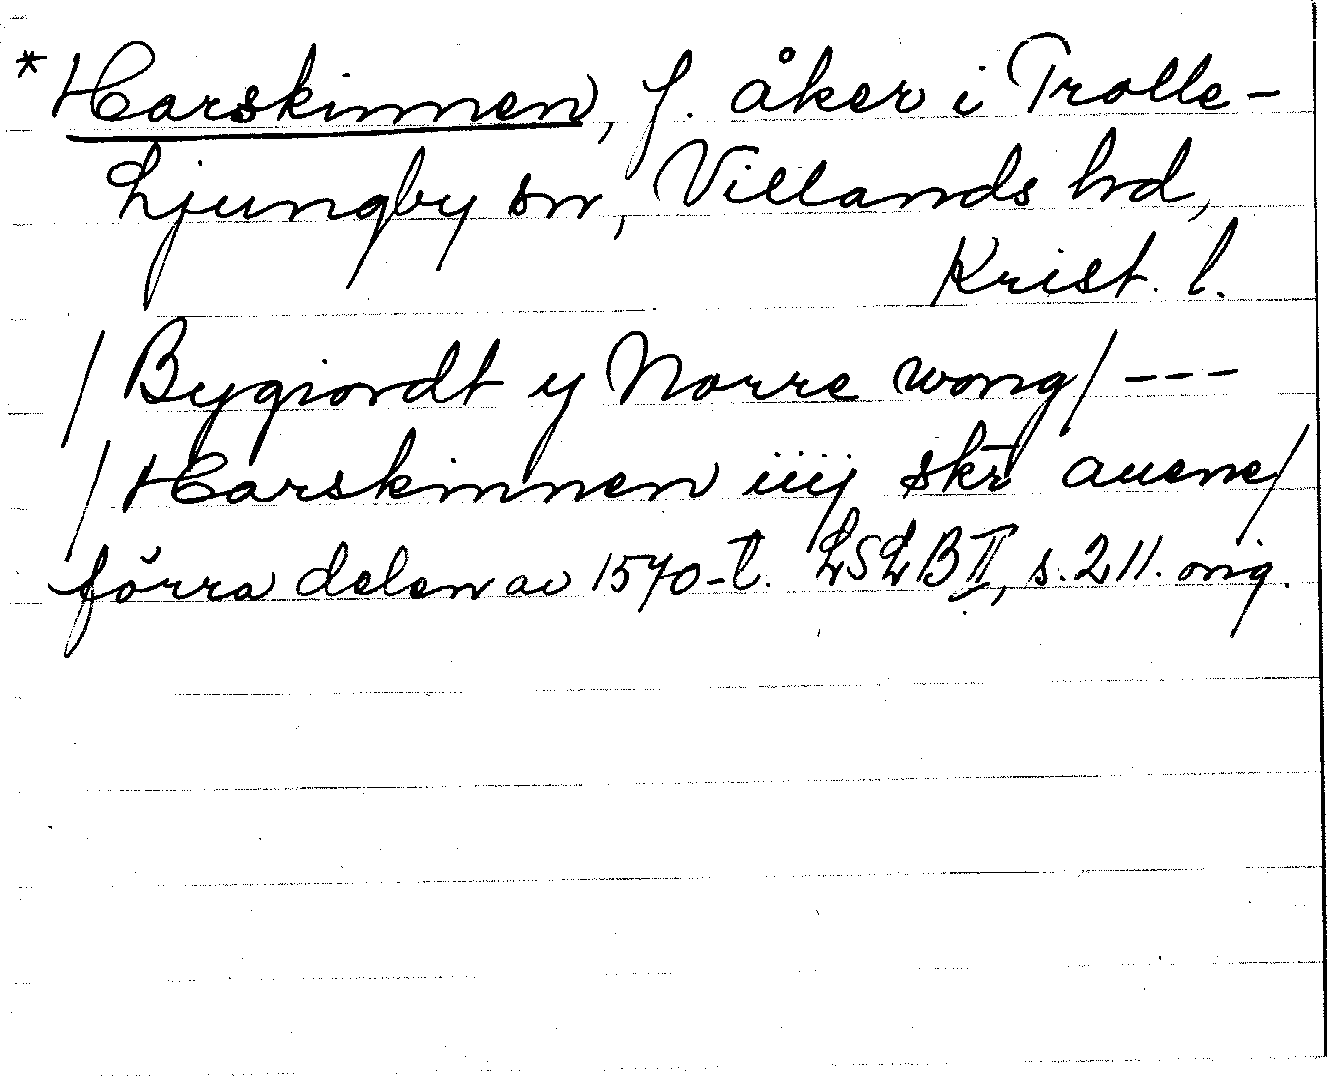 * Harskinnen, f. åker i Trolle-
Ljungby sn, Villands hd,
Krist. l.
/ Bygiordt y Norre wong / ---
/ Harskinnen iiij skr auene /
förra delen av 1570-t. LSLB II, s. 211. orig.